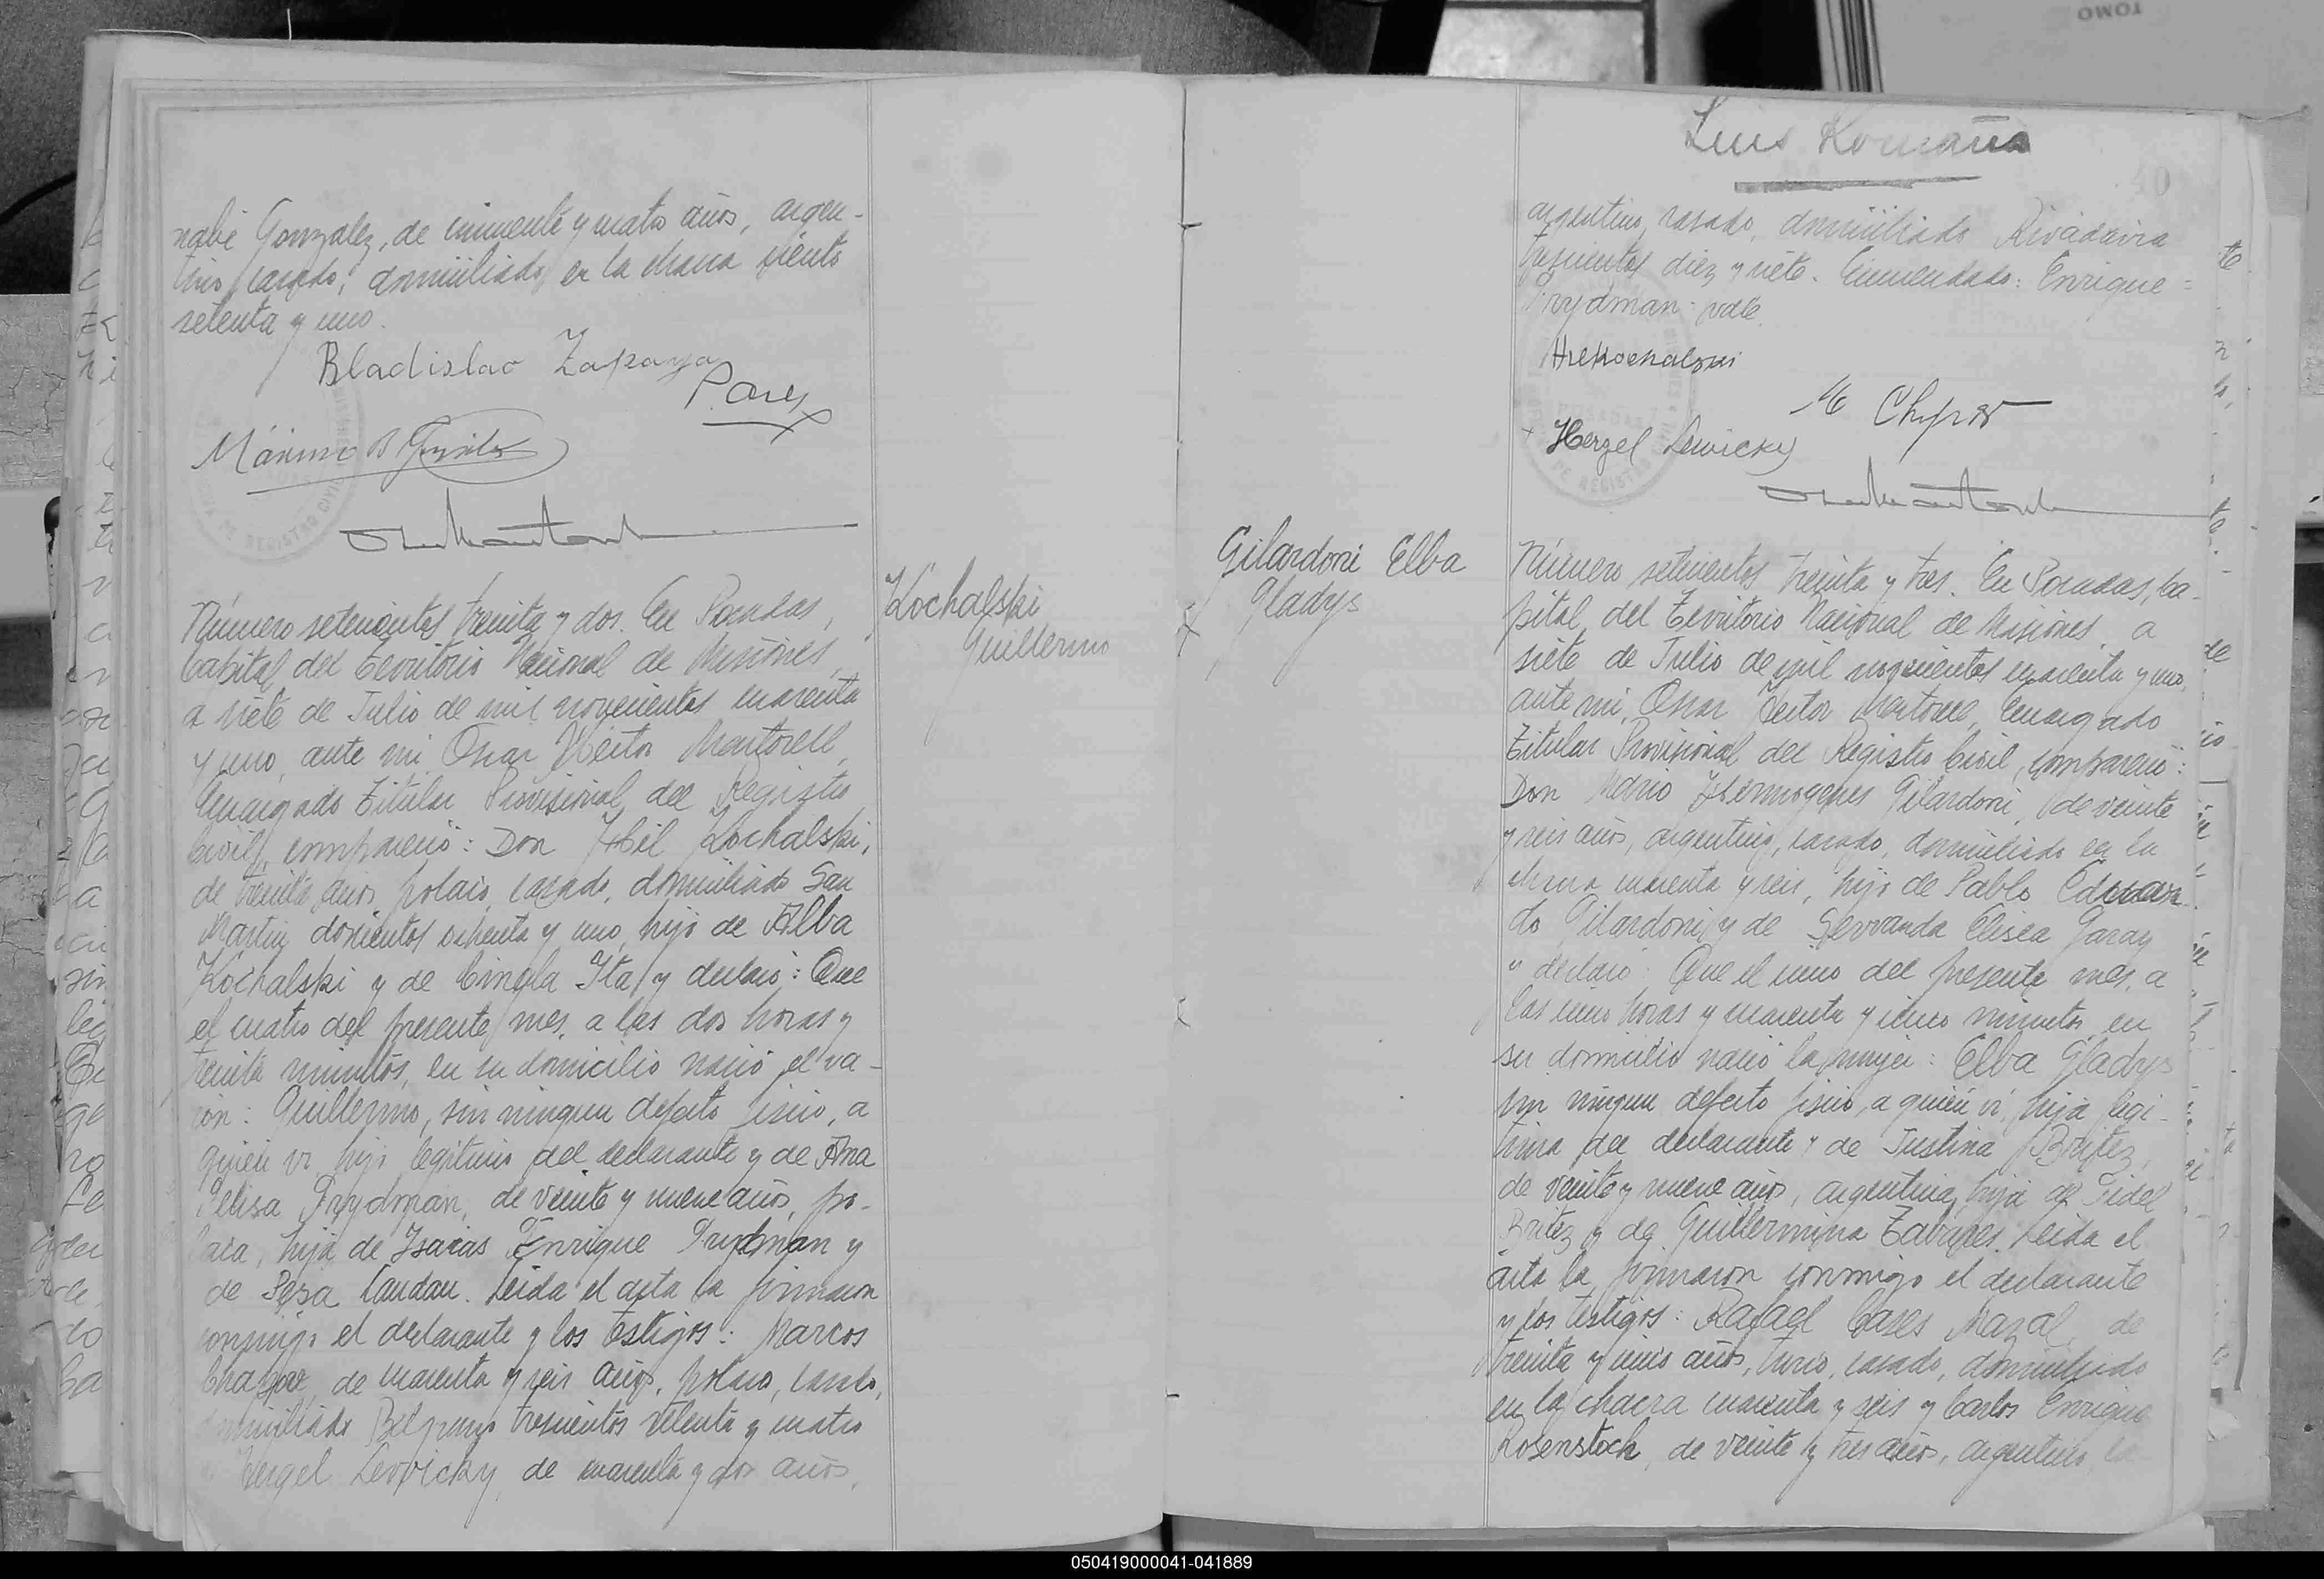 nabé Gonzalez, de cincuenta y cuatro años, argen-
tino, casado, domiciliado en la chacra ciento
setenta y uno.
Bladislao Zapaya
P. Ares
Máximo B
Número setecientos treinta y dos. En Posadas,
Capital del Territorio Nacional de Misiones,
a siete de Julio de mil novecientos cuarenta
y uno, ante mi, Oscar Héctor Martorell,
Encargado Titular Provisional del Registro
Civil, compareció: Don Hil Kochalski,
de treinta años, polaco, casado, domiciliado San
Martin doscientos ochenta y uno, hijo de Alba
Kochalski y de Cingla Ita y declaró: Que
el cuatro del presente mes, a las dos horas y
treinta minutos, en su domicilio nació el va-
rón: Guillermo, sin ningun defecto fisico, a
quién vi, hijo legitimo del declarante y de Ana
Frydman, de veinte y nueve años, po-
laca, hija de Isaias Enrique Frydman y
de Landau. Leida el acta la firmaron
conmigo el declarante y los testigos: Marcos
de cuarenta y seis años, polaco, casado,
domiciliado Belgrano trescientos setenta y cuatro
Hergel Levvicky, de cuarenta y dos años,
Kochalski
Guillermo
Luis Romaña
40
argentino, casado, domiciliado Rivadavia
trescientos diez y siete. Enmendado: Enrique =
Frydman = vale.
M
Herzel Lewicky
REGISTRO
Gilardoni Elba
Gladys
Número setecientos treinta y tres. En Posadas, Ca-
pital del Territorio Nacional de Misiones, a
siete de Julio de mil novecientos cuarenta y uno,
ante mi, Oscar Héctor Martorell, Encargado
Titular Provisional del Registro Civil, compareció:
Don Mario Hermogenes Gilardoni, de veinte
y seis años, argentino, casado, domiciliado en la
chacra cuarenta y seis, hijo de Pablo Eduar-
do Gilardoni y de Servanda Elisea Garay
y declaró: Que el uno del presente mes, a
las cinco horas y cuarenta y cinco minutos, en
su domicilio nació la mujer: Elba Gladys
sin ningun defecto fisico, a quién vi, hija legi-
tima del declarante y de Justina Britez,
de veinte y nueve años, argentina, hija de Fidel
Britez y de Guillermina Tabares. Leida el
acta la firmaron conmigo el declarante
y los testigos: Rafael Cases Mazal, de
treinta y cinco años, turco, casado, domiciliado
en la chacra cuarenta y seis y Carlos Enrique
Rosenstock, de veinte y tres años, argentino, ca
TOMO
050419000041-041889